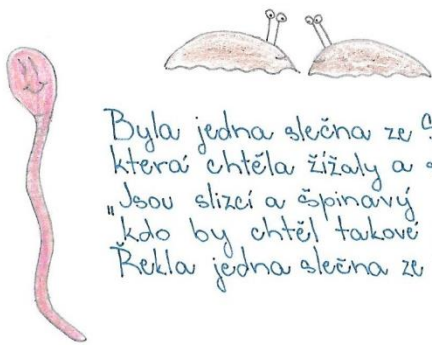 Byla jedna slečna ze
která chtěla žížaly a
"Jsou slizcí a špinavý
kdo by chtěl takové
Řekla jedna slečna ze